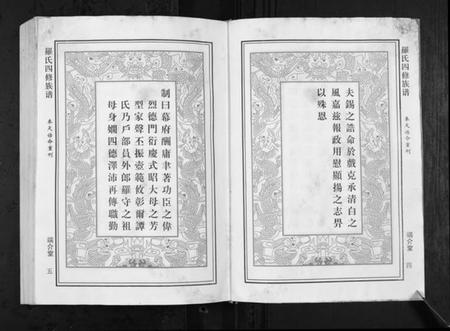 羅氏四修族谱
奉天誥命重刊
端介堂
四
夫錫之誥命於戲克承清白之
風嘉兹報政用慰顯揚之志畀
以殊恩
制曰幕府酬庸聿著功臣之偉
烈德門衍慶式昭大母之芳
型家聲丕振壺範攸彰爾譚
氏乃戶部員外郎羅守之祖
母身嫻四德澤沛再傳職勤
羅氏四修族谱
奉天誥命重刊
端介堂
五